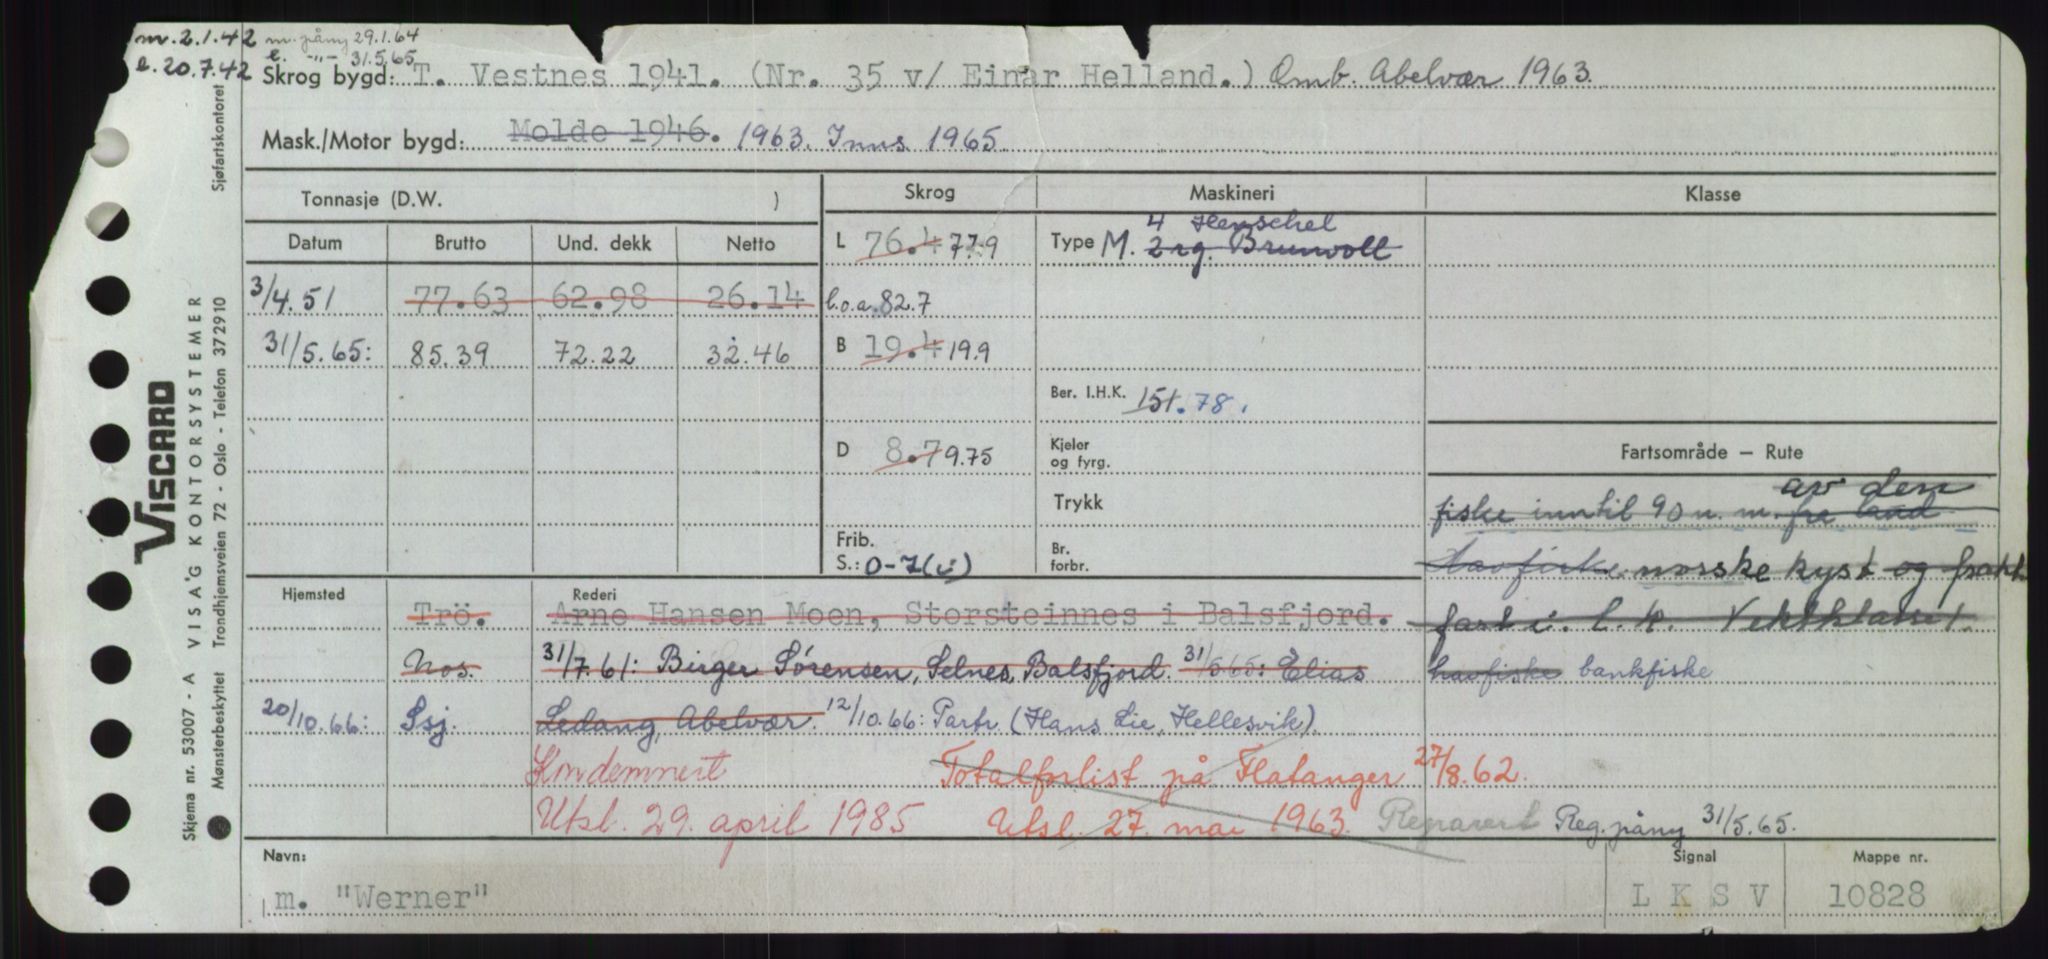 m. 2.1.42 m. påny 29.1.64
e. 20.7.42 e. -"- 31.5.65
Skrog bygd: T. Vestnes 1941. (Nr. 35 v/ Einar Helland.) Omb. Abelvær 1963.
Mask./Motor bygd: Molde 1946. 1963. Inns. 1965
Tonnasje (D.W. ) Skrog Maskineri Klasse
Datum Brutto Und. dekk Netto
L 76.4 77.9 Type M. 4 Henschel
2 rg. Brunvoll
3/4.51 77.63 62.98 26.14 l.o.a. 82.7
31/5.65: 85.39 72.22 32.46 B 19.4 19.9
Ber. I.H.K. 151. 78.
D 8.7 9.75 Kjeler og fyrg.
Fartsområde – Rute
Trykk
av den
fiske inntil 90 n. m. fra land
Frib. S.: 0-7(i) Br. forbr.
Havfiske norske kyst og frakt
fart i l. k. Vektklasse 1.
havfiske bankfiske
Hjemsted Rederi
Trö. Arne Hansen Moen, Storsteinnes i Balsfjord.
Nos. 31/7.61: Birger Sørensen, Selnes, Balsfjord. 31/5.65: Elias
20/10.66: Ssj. Ledang, Abelvær. 12/10.66: Partr. (Hans Lie, Hellesvik).
Kondemnert Totalforlist på Flatanger 27/8.62.
Utsl. 29. april 1985 Utsl. 27. mai 1963. Reparert Reg. påny 31/5.65.
Navn: Signal Mappe nr.
m. "Werner" LKSV 10828
VISCARD
VISAG KONTORSYSTEMER
Skjema nr. 53007 - A
Mønsterbeskyttet Trondhjemsveien 72 - Oslo - Telefon 372910
Sjøfartskontoret